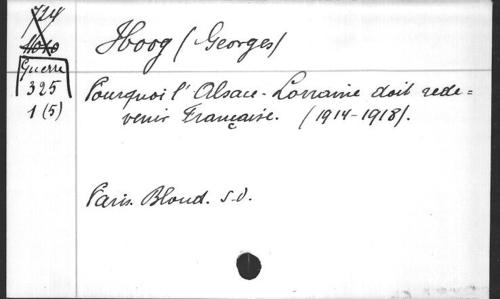 724
Guerre
325
1 (5)
Hoog (Georges)
Pourquoi l'Alsace-Lorraine doit rede=
venir Française. (1914-1918).
Paris. Bloud. s.d.